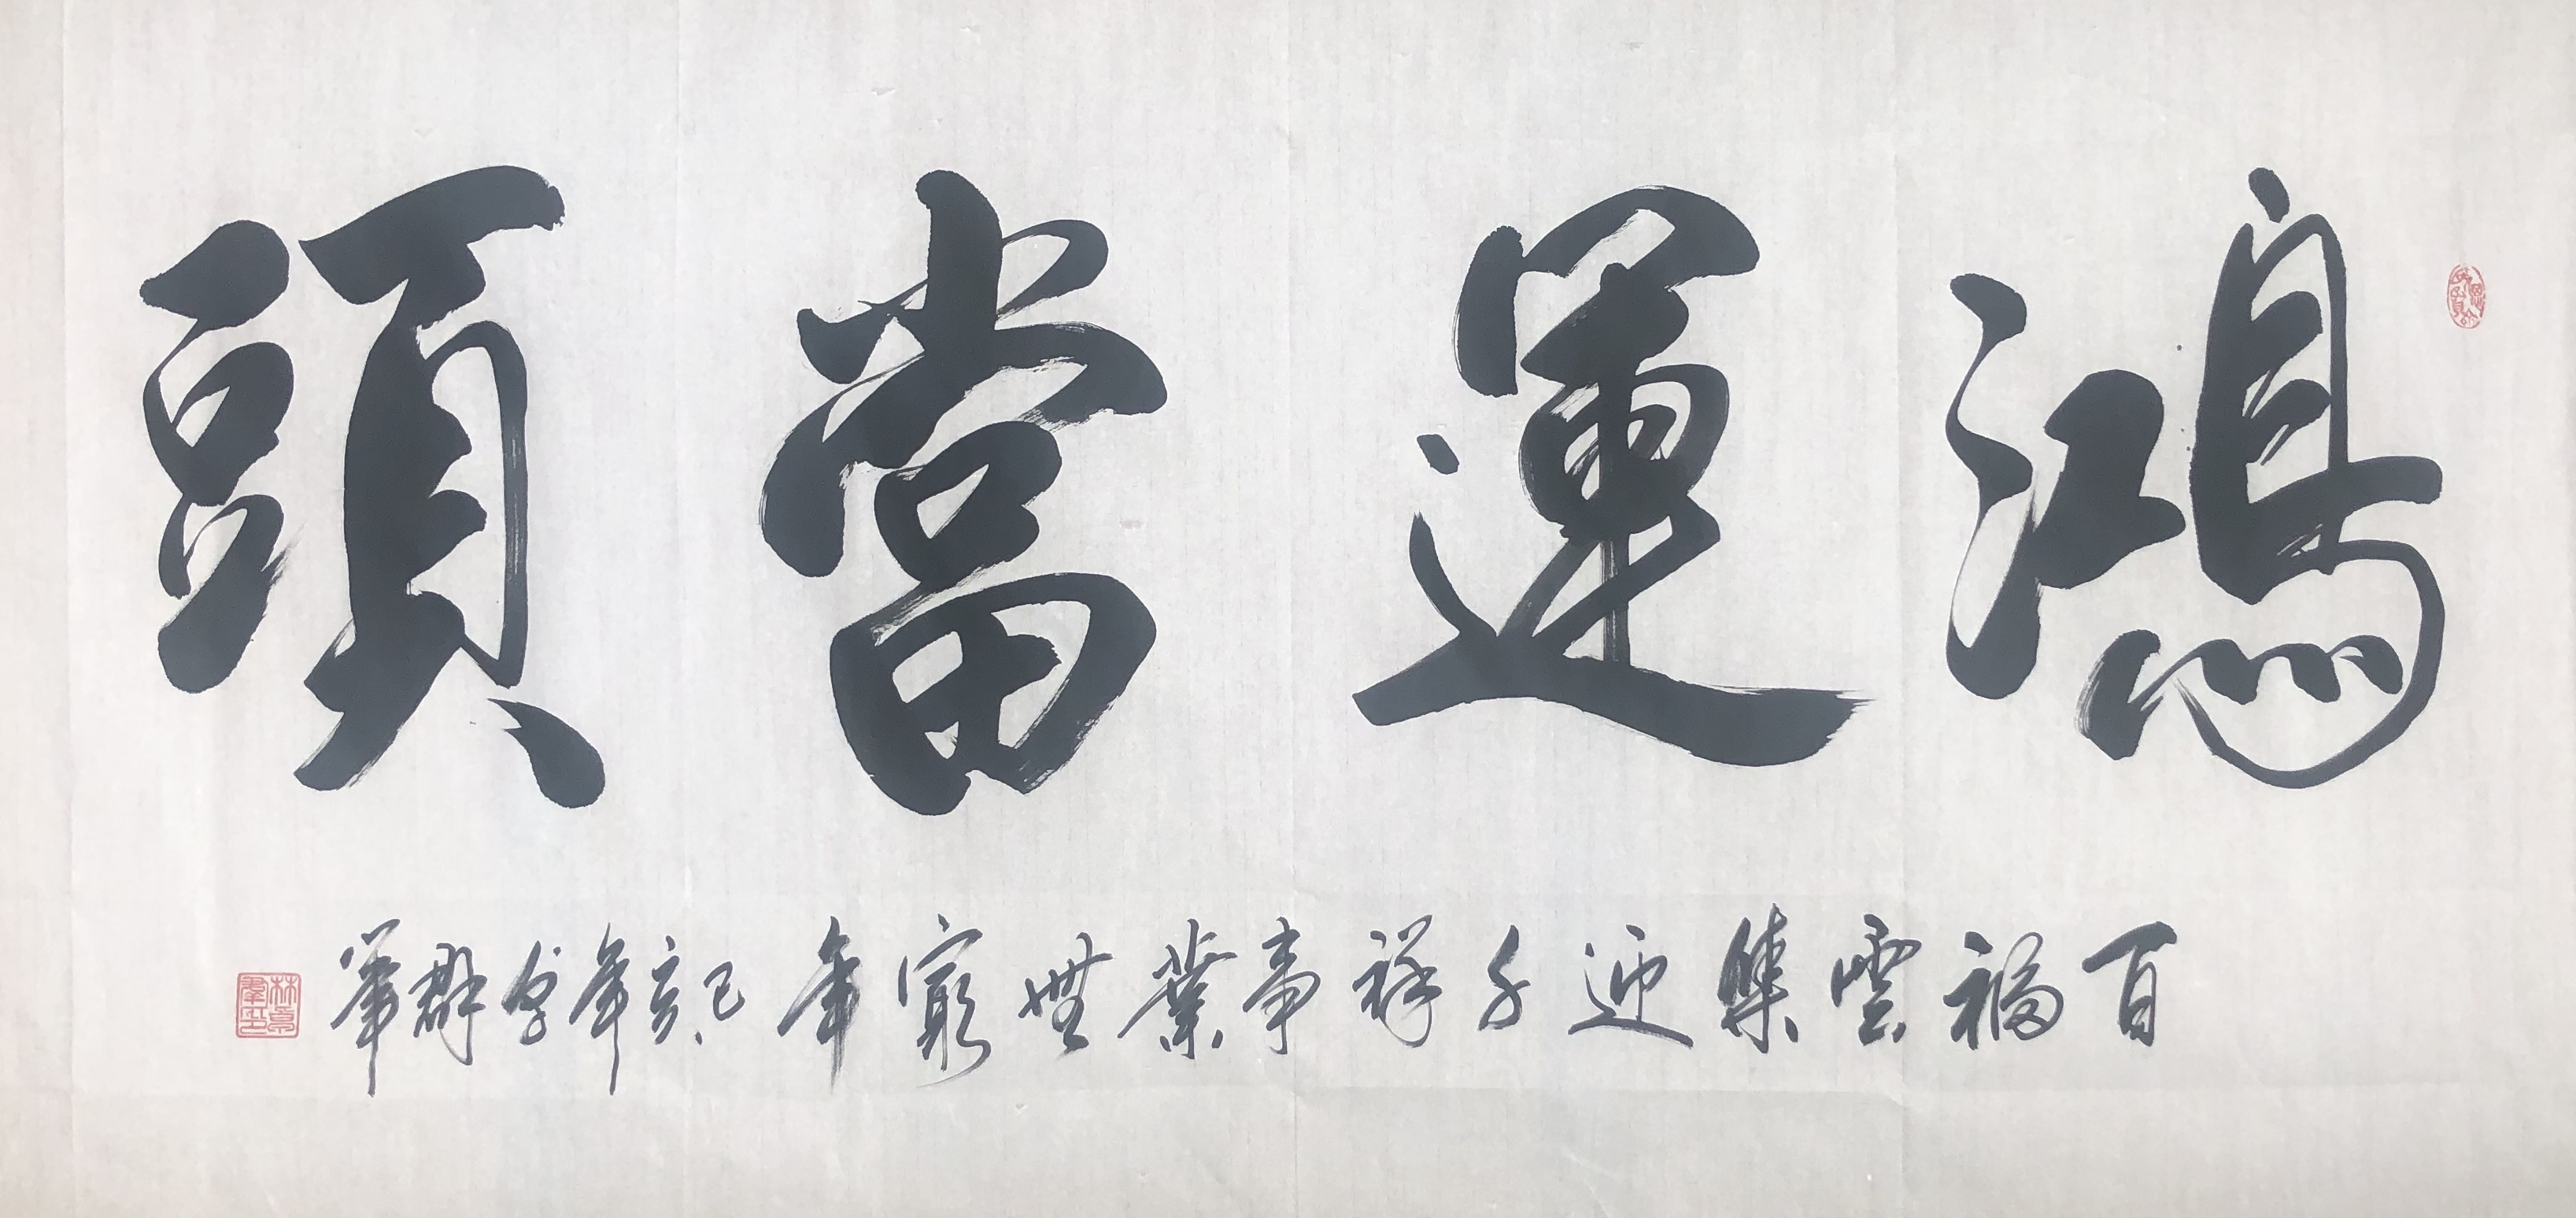 鴻運當頭
百福雲集迎千祥事業無窮年己亥年京群筆
林京群印